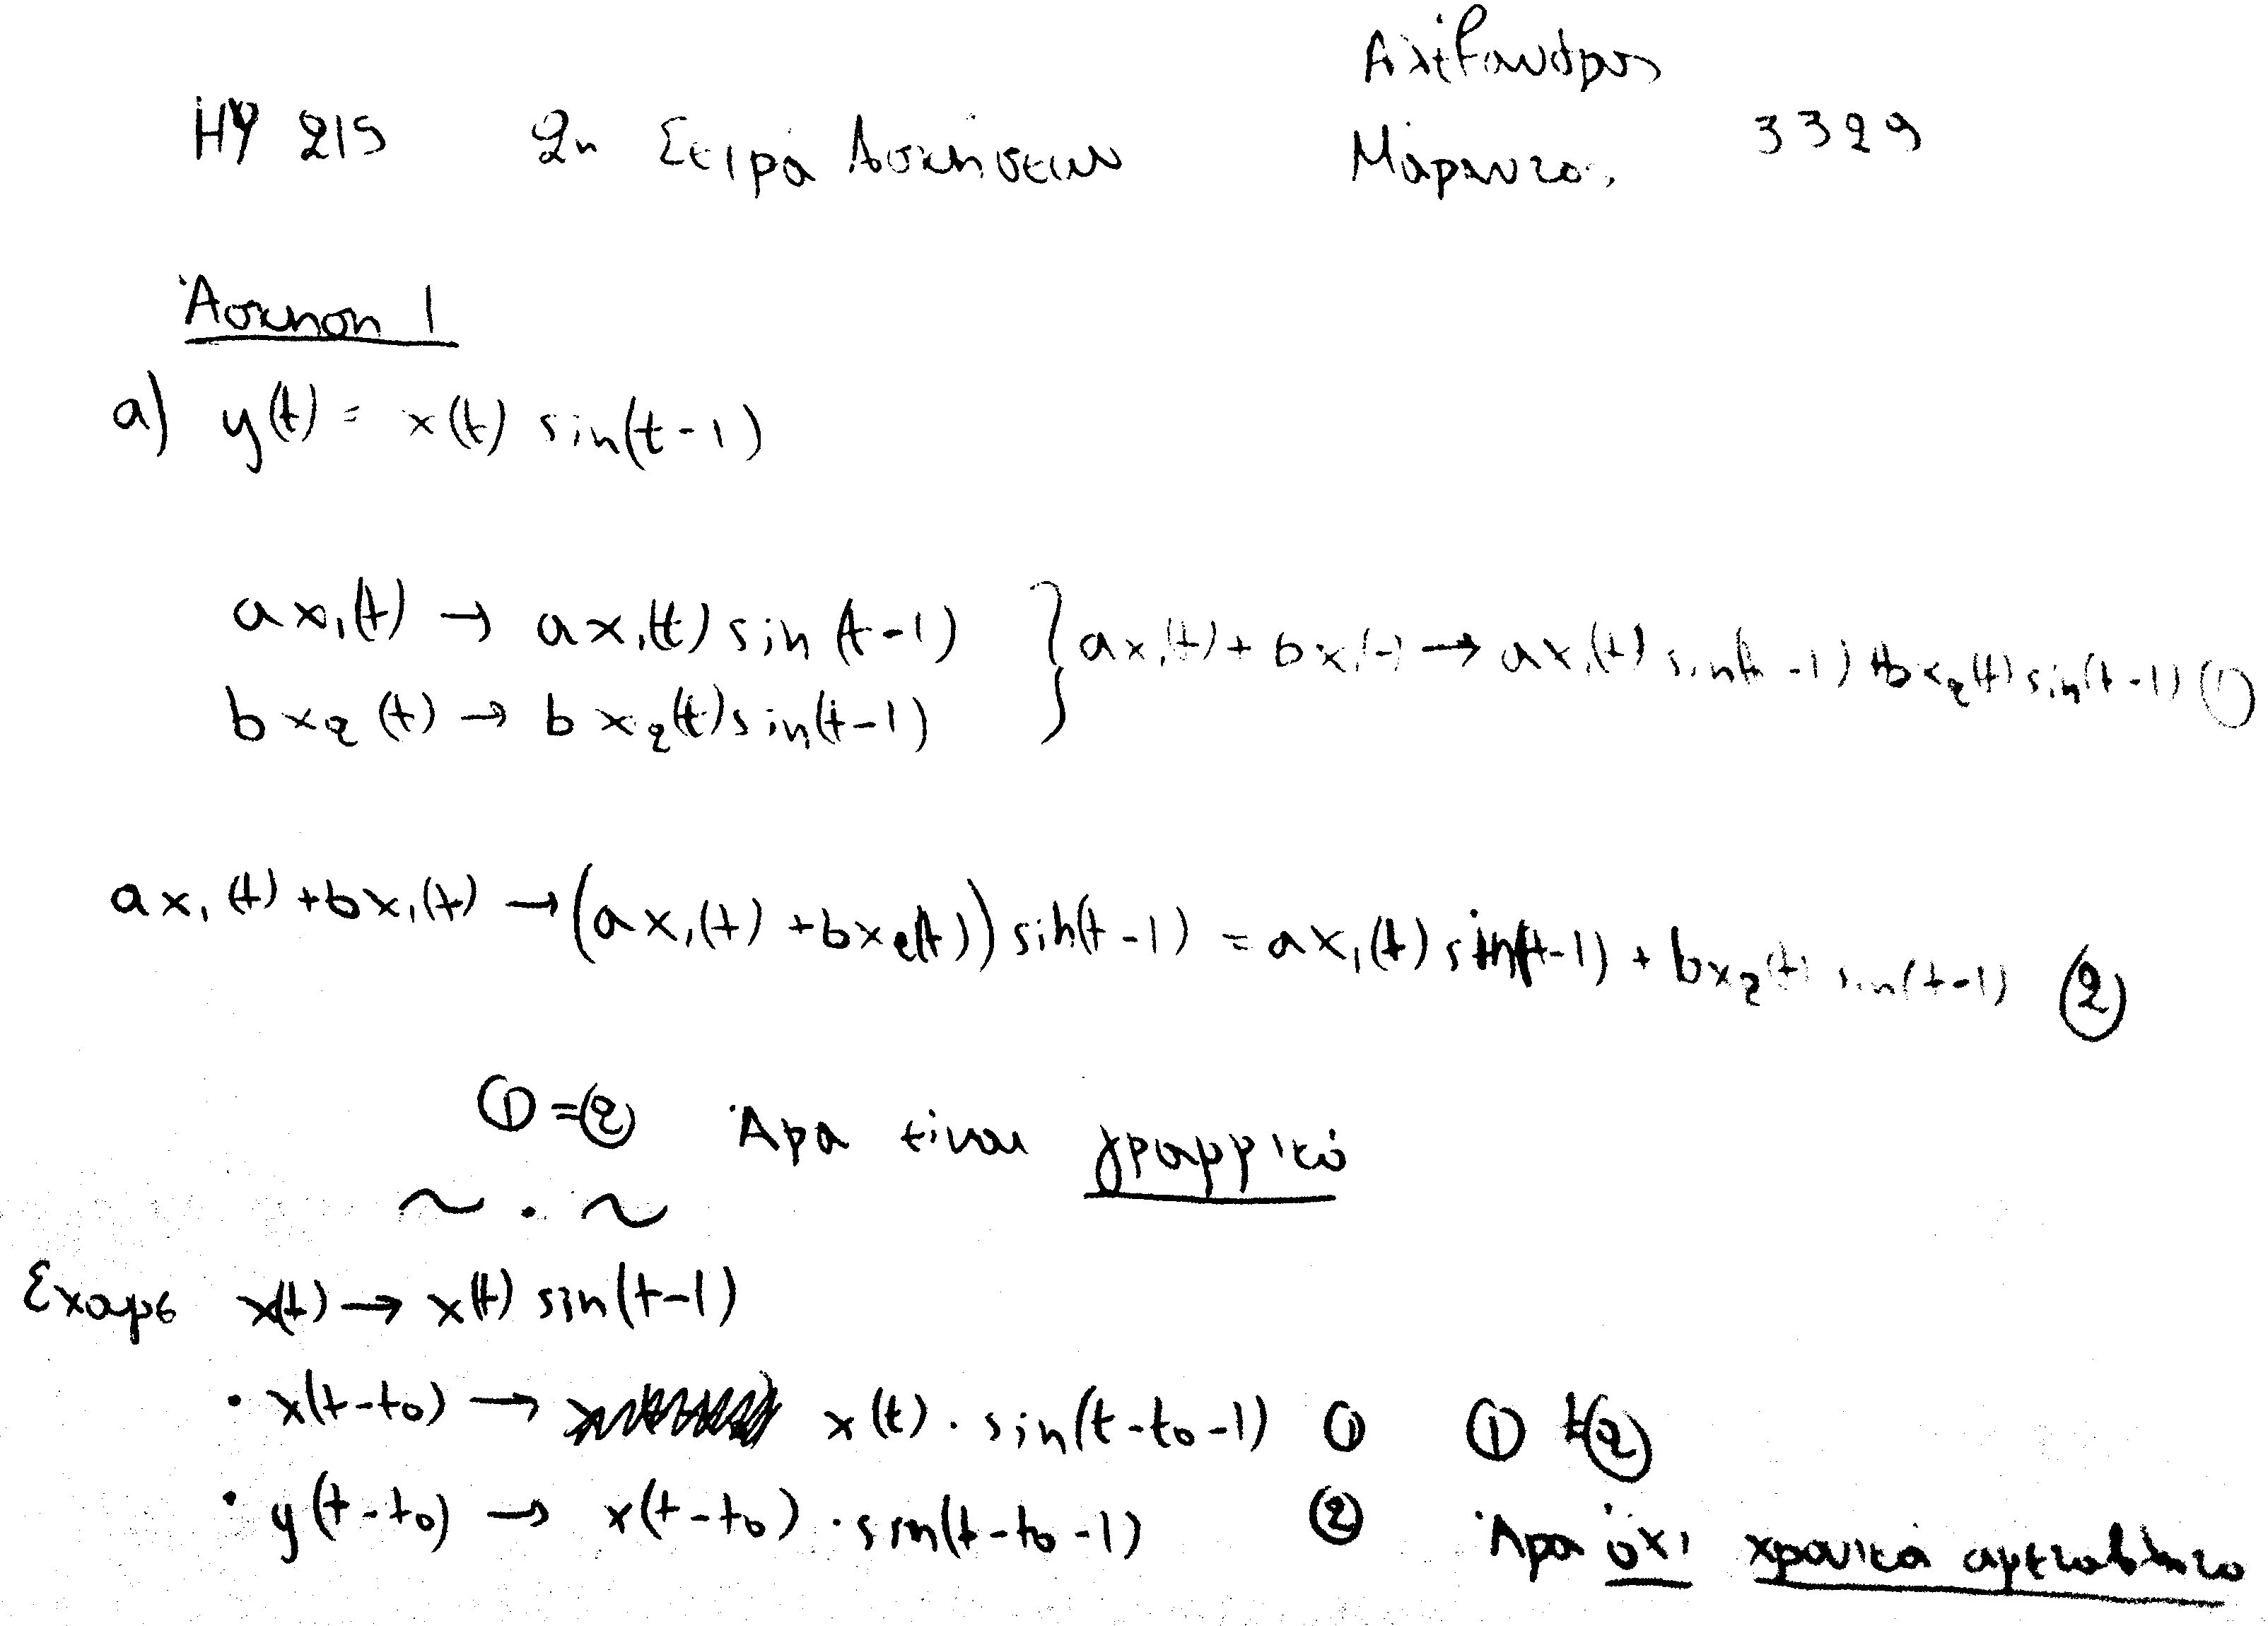 Αλέξανδρος
ΗΥ 215 2η Σειρά Ασκήσεων Μάραντος 3329
Άσκηση 1
a) y(t) = x(t) sin(t-1)
ax₁(t) → ax₁(t) sin(t-1) } ax₁(t) + bx₁(t) → ax₁(t) sin(t-1) + bx₂(t) sin(t-1) ①
bx₂(t) → bx₂(t) sin(t-1)
ax₁(t) + bx₁(t) → (ax₁(t) + bx₂(t)) sin(t-1) = ax₁(t) sin(t-1) + bx₂(t) sin(t-1) ②
① = ② Άρα είναι γραμμικό
~ . ~
Εχουμε x(t) → x(t) sin(t-1)
• x(t-t₀) → x(t) · sin(t-t₀-1) ① ① ≠ ②
• y(t-t₀) → x(t-t₀) · sin(t-t₀-1) ② Άρα όχι χρονικά αμετάβλητο